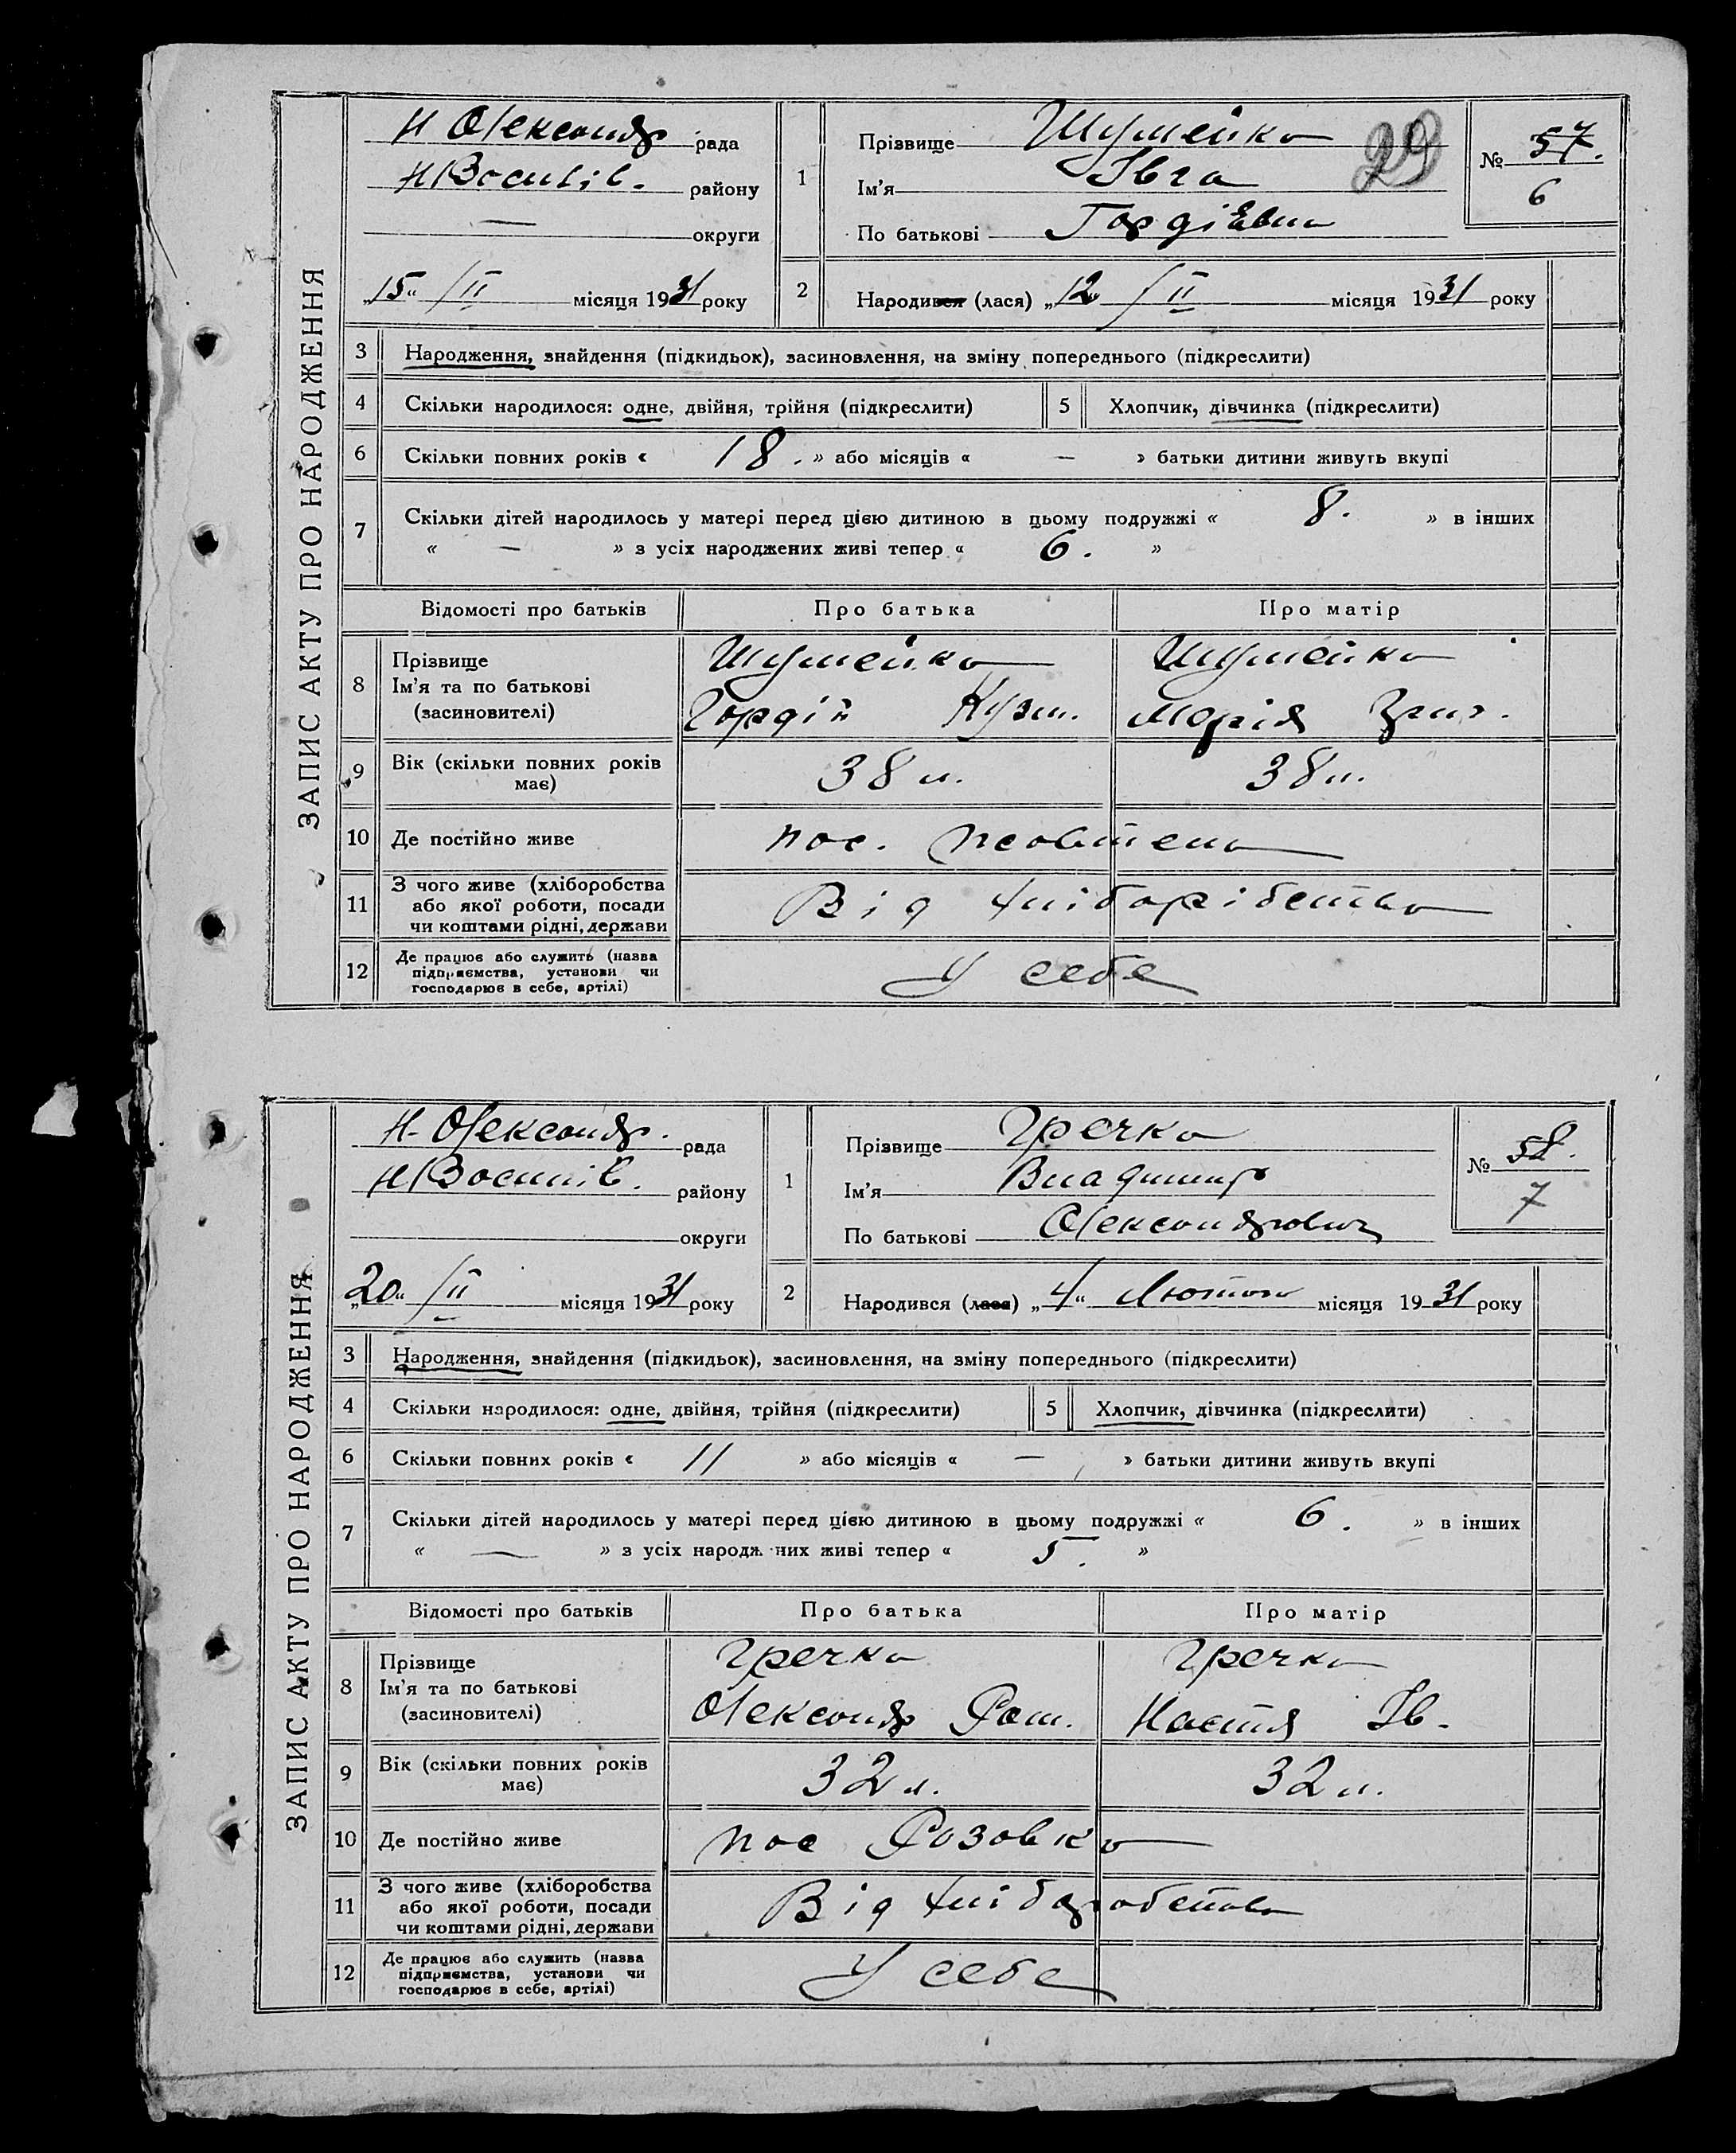 ЗАПИС АКТУ ПРО НАРОДЖЕННЯ
Н Олександр рада
Н Василів. району
— округи
„15“ /II місяця 1931 року
1
Прізвище Шумейко
Ім'я Івга
По батькові Гордіевна
29
№ 57.
6
2 Народився (лася) „12“ /II місяця 1931 року
3 Народження, знайдення (підкидьок), засиновлення, на зміну попереднього (підкреслити)
4 Скільки народилося: одне, двійня, трійня (підкреслити) 5 Хлопчик, дівчинка (підкреслити)
6 Скільки повних років « 18. » або місяців « — » батьки дитини живуть вкупі
7 Скільки дітей народилось у матері перед цією дитиною в цьому подружжі « 8. » в інших
« — » з усіх народжених живі тепер « 6. »
Відомості про батьків Про батька Про матір
8 Прізвище Шумейко Шумейко
Ім'я та по батькові Гордій Кузм. Марія Григ.
(засиновителі)
9 Вік (скільки повних років має) 38 л. 38 л.
10 Де постійно живе пос.
11 З чого живе (хліборобства
або якої роботи, посади
чи коштами рідні, держави Від хліборібства
12 Де працює або служить (назва
підприємства, установи чи
господарює в себе, артілі) У себе
ЗАПИС АКТУ ПРО НАРОДЖЕННЯ
Н-Олександр. рада
Н Василів. району
округи
„20“ /II місяця 1931 року
1
Прізвище Гречко
Ім'я Владимир
По батькові Олександрович
№ 58.
7
2 Народився (лася) „4“ Лютого місяця 1931 року
3 Народження, знайдення (підкидьок), засиновлення, на зміну попереднього (підкреслити)
4 Скільки народилося: одне, двійня, трійня (підкреслити) 5 Хлопчик, дівчинка (підкреслити)
6 Скільки повних років « 11 » або місяців « — » батьки дитини живуть вкупі
7 Скільки дітей народилось у матері перед цією дитиною в цьому подружжі « 6. » в інших
« — » з усіх народж них живі тепер « 5. »
Відомості про батьків Про батька Про матір
8 Прізвище Гречко Гречко
Ім'я та по батькові Олександр Ром. Настя Ів.
(засиновителі)
9 Вік (скільки повних років має) 32 л. 32 л.
10 Де постійно живе пос Розовка
11 З чого живе (хліборобства
або якої роботи, посади
чи коштами рідні, держави Від хліборобства
12 Де працює або служить (назва
підприємства, установи чи
господарює в себе, артілі) У себе